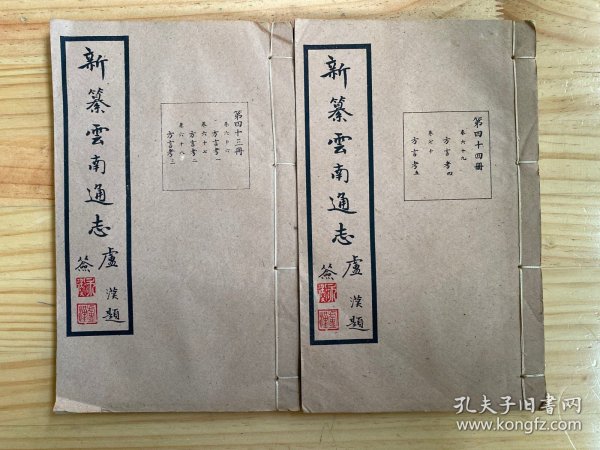 新纂雲南通志
盧漢題簽
第四十三冊
卷六十六
方言考一
卷六十七
方言考二
卷六十八
方言考三
新纂雲南通志
盧漢題簽
第四十四冊
卷六十九
方言考四
卷七十
方言考五
孔夫子旧书网
www.kongfz.com